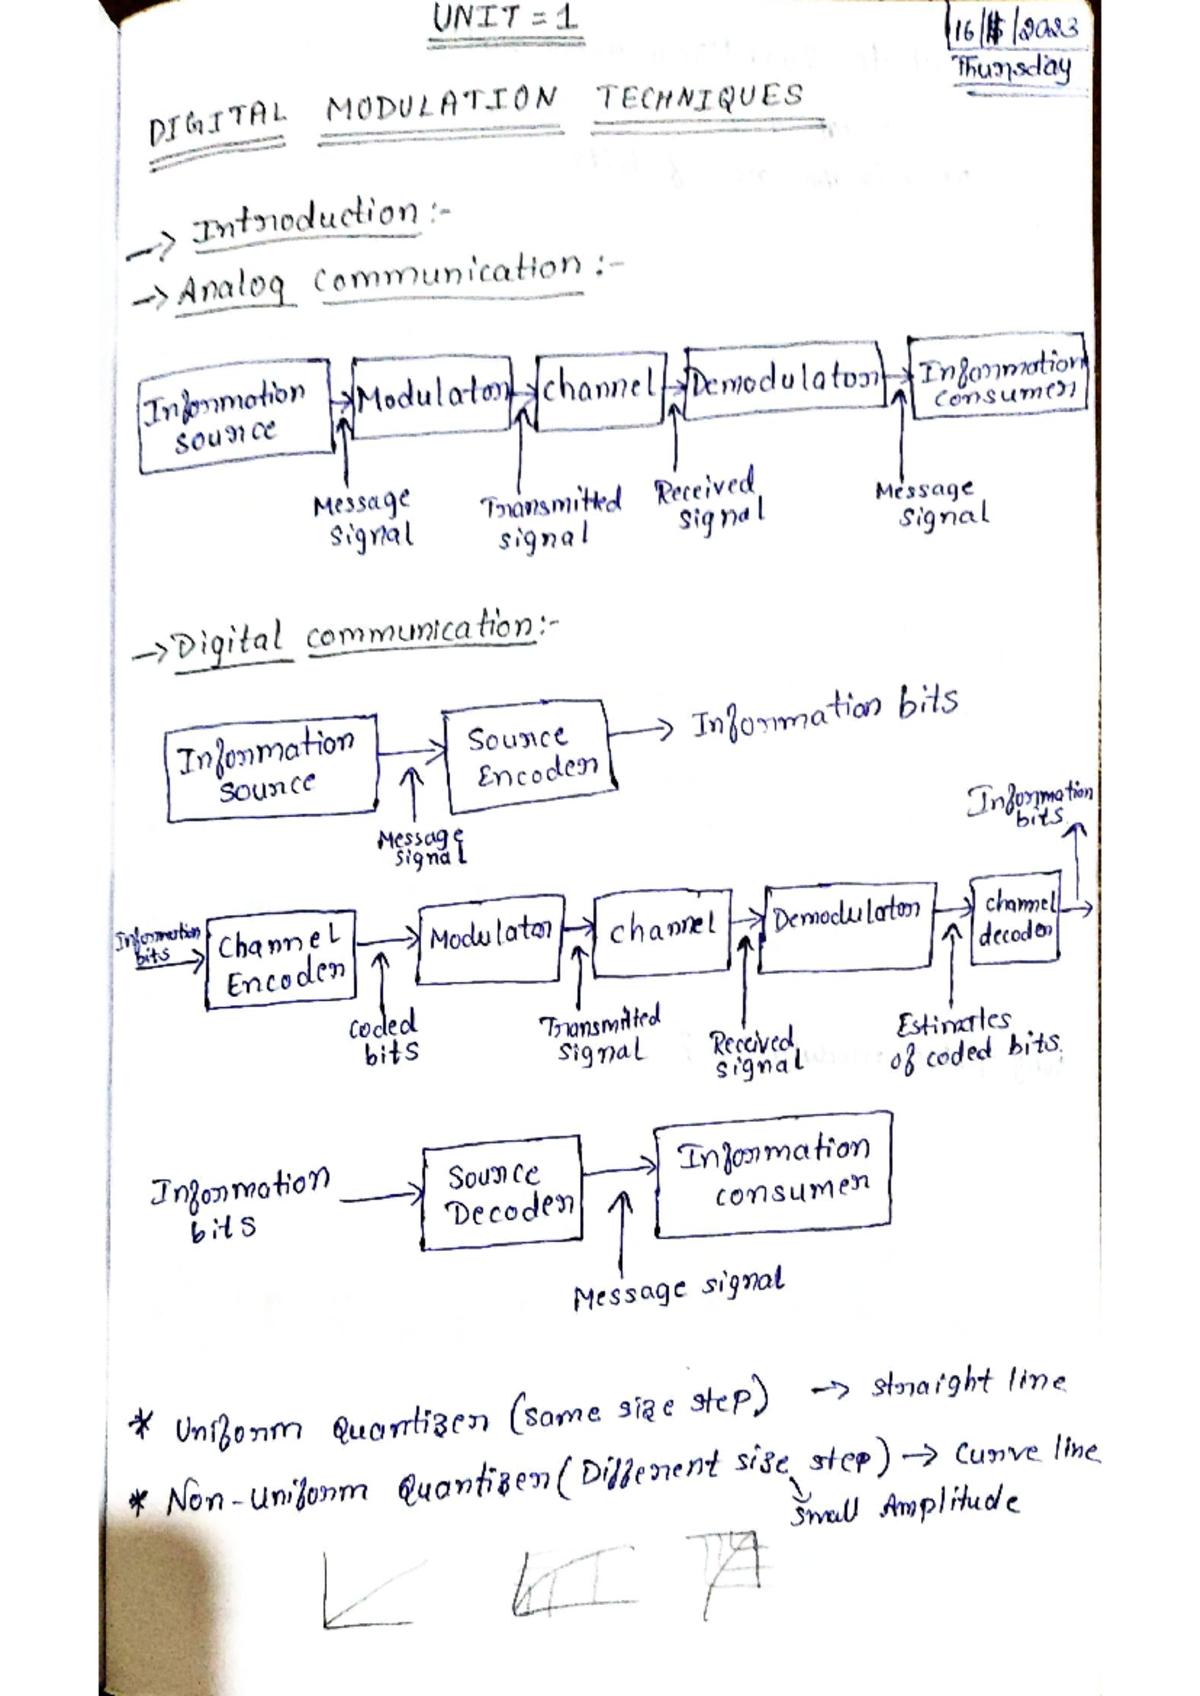 UNIT = 1
16/ /2023
Thursday
DIGITAL MODULATION TECHNIQUES
-> Introduction :-
-> Analog Communication :-
Information source
Modulator
channel
Demodulator
Information consumer
Message signal
Transmitted signal
Received signal
Message signal
-> Digital communication:-
Information source
Source Encoder
Information bits
Message signal
Information bits
Information bits
Channel Encoder
Modulator
channel
Demodulator
channel decoder
coded bits
Transmitted signal
Received signal
Estimates of coded bits.
Information bits
Source Decoder
Information consumer
Message signal
* Uniform Quantizer (same size step) -> straight line
* Non-uniform Quantizer (Different size step) -> curve line
small Amplitude